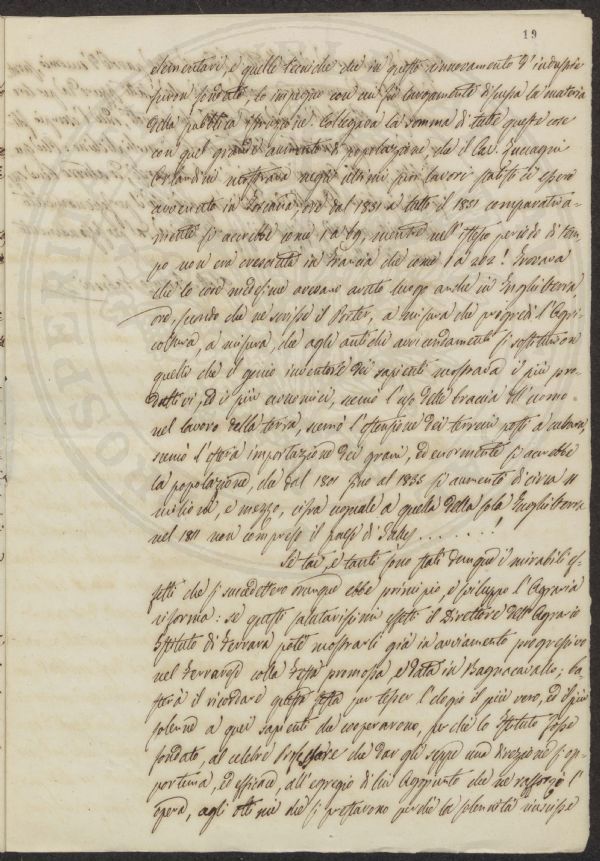 19
elementari, e quelle tecniche che in questo rinnovamento d'industrie
furon fondate, lo impegno con cui più largamente diffusa la materia
della pubblica istruzione. Collegava la somma di tutte queste cose
con quel grande aumento di popolazione che il Cav. Zuccagni
Orlandini mostrava negli ultimi suoi lavori statistici essere
avvenuto in Toscana, ove dal 1831 a tutto il 1851 comparativa-
mente si accrebbe come 1 a 89, mentre nell'istesso periodo di tem-
po non era cresciuta in Francia che come 1 a 202! Trovava
che le cose medesime avevano avuto luogo anche in Inghilterra
ove, secondo che ne scrisse il Porter, a misura che progredì l'Agri-
coltura, a misura, che agli antichi avvicendamenti si sostituiron
quelli che il genio inventore dei sapienti mostrava il più pro-
duttivi, ed i più economici, scemò l'uso delle braccia dell'uomo
nel lavoro della terra, scemò l'estensione dei terreni posti a cultura,
scemò l'estera importazione dei grani, ed enormemente si accrebbe
la popolazione, che dal 1801 fino al 1835 si aumentò di circa 11
milioni, e mezzo, cifra uguale a quella della sola Inghilterra
nel 1811 non compreso il paese di Galles . . . . . . . !
Se tai, e tanti sono stati dunque i mirabili ef-
fetti che si succedettero ovunque ebbe principio, e sviluppo l'Agraria
riforma: se questi salutarissimi effetti il Direttore dell'Agrario
Istituto di Ferrara potè mostrarli già in avviamento progressivo
nel Ferrarese colla Festa promossa, e data in Bagnacavallo; ba-
sterà il ricordare questa festa per tesser l'elogio il più vero, ed il più
solenne a quei sapienti che cooperarono, perchè lo Istituto fosse
fondato, al celebre Professore che dar gli seppe una direzione sì op-
portuna, ed efficace, all'egregio di lui Aggiunto che ne rafforzò l'
opera, agli che si prestarono perchè la solennità riuscisse